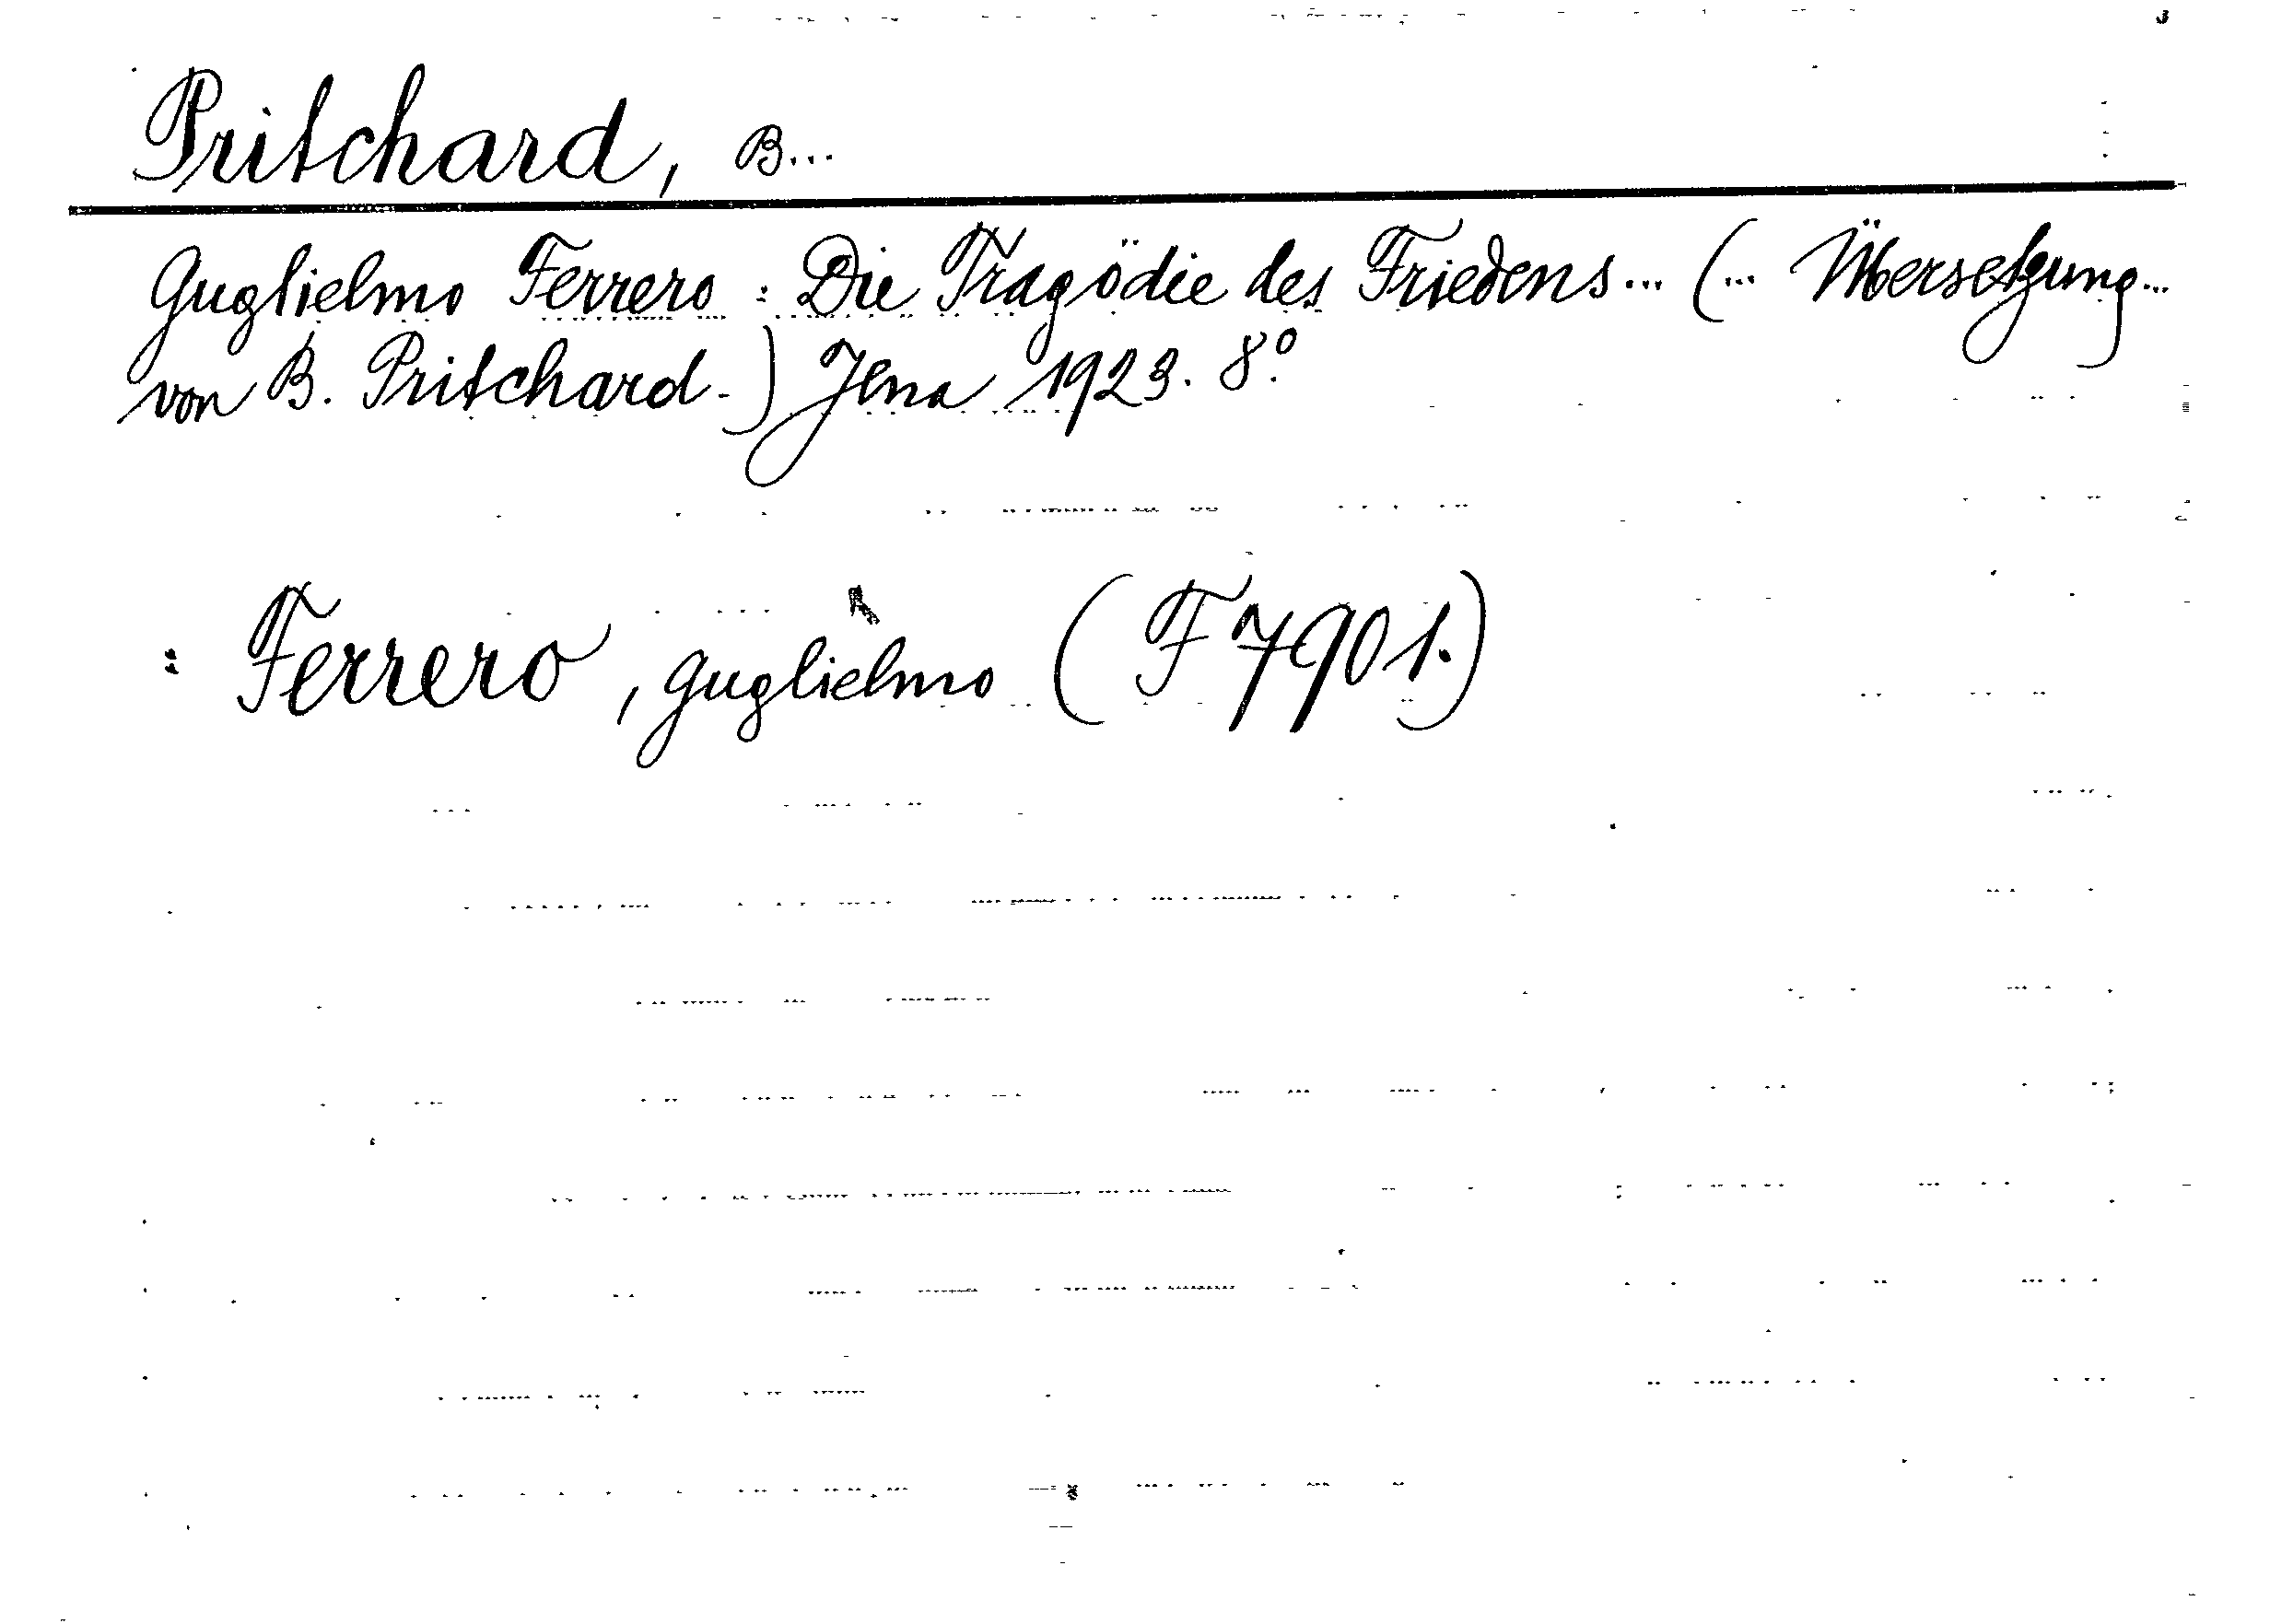 Pritchard, B...
Guglielmo Ferrero : Die Tragödie des Friedens... (... Übersetzung...
von B. Pritchard.) Jena 1923. 8.°
: Ferrero, Guglielmo (F 7901.)